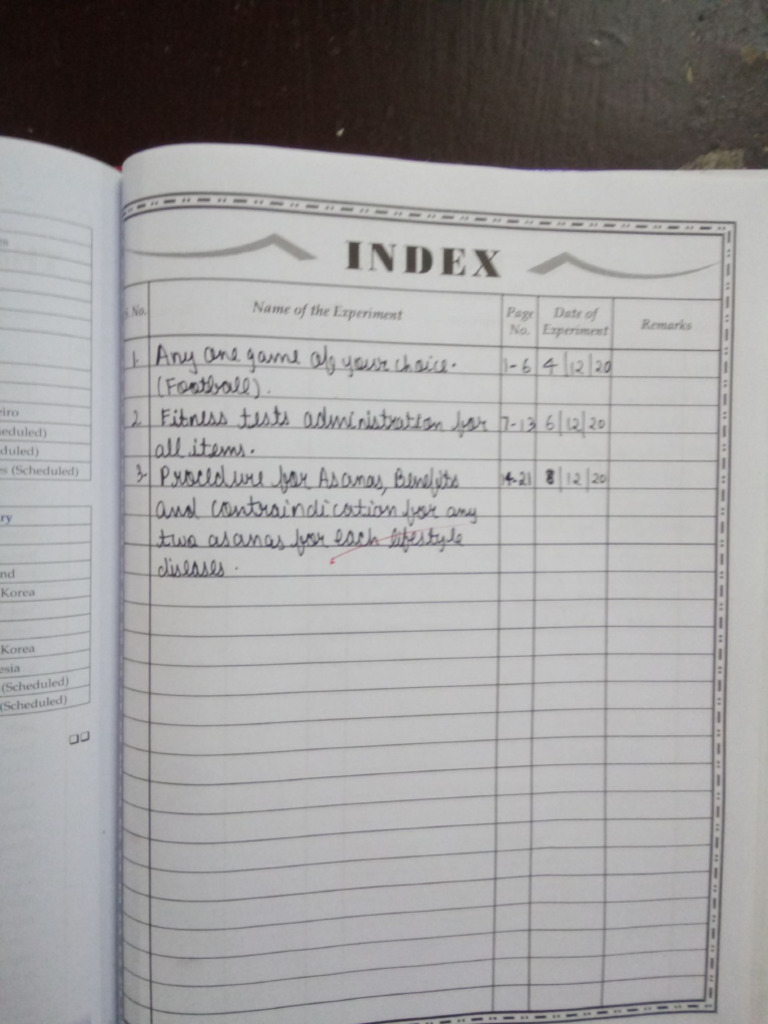 iro
eduled)
duled)
s (Scheduled)
ry
nd
Korea
Korea
esia
(Scheduled)
(Scheduled)
INDEX
S. No. Name of the Experiment Page No. Date of Experiment Remarks
1. Any one game of your choice. 1-6 4/12/20
(Football).
2. Fitness tests administration for 7-13 6/12/20
all items.
3. Procedure for Asanas, Benefits 14-21 8/12/20
and contraindication for any
two asanas for each lifestyle
diseases.